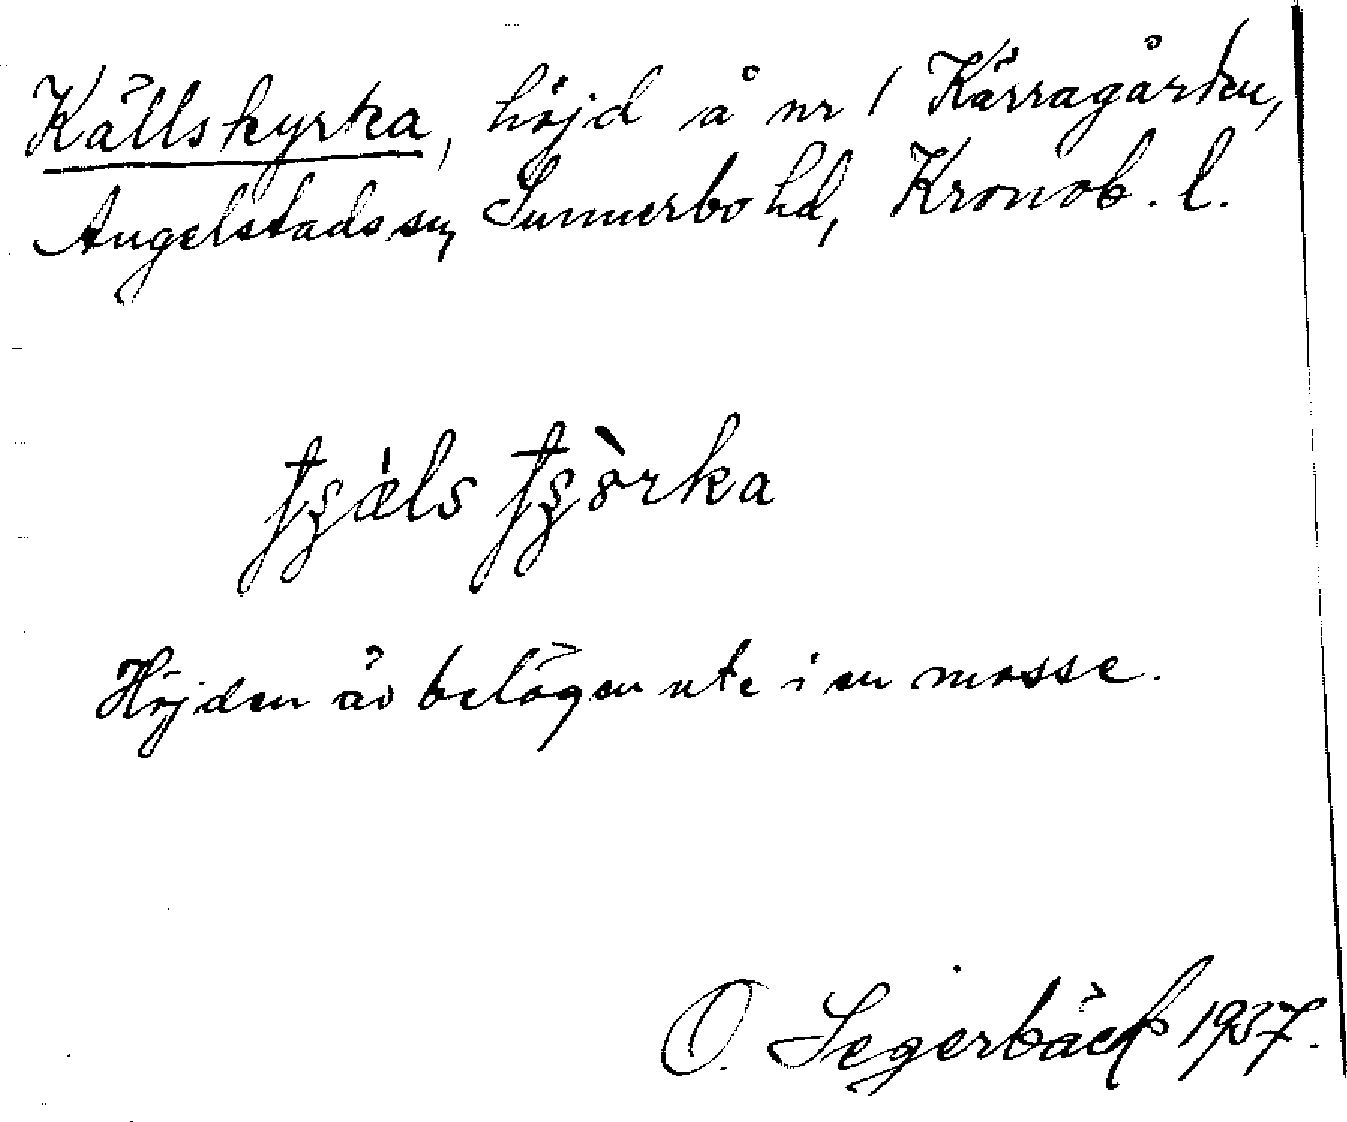 Källskyrka, höjd å nr 1 Kärragården,
Angelstads sn, Sunnerbo hd, Kronob. l.
Höjden är belägen ute i en mosse.
O. Segerbäck 1937.